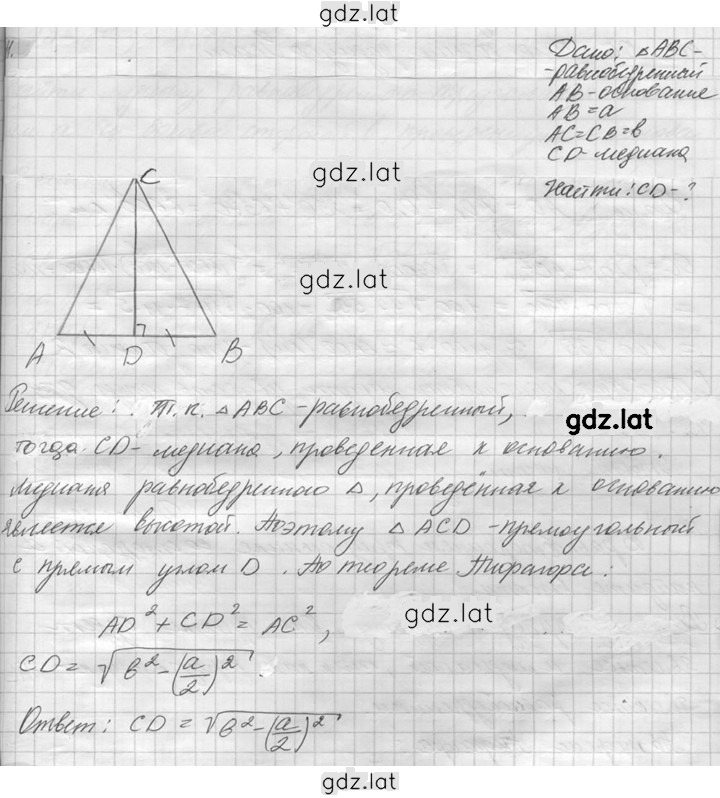 gdz.lat
11.
Дано: △ABC-
-равнобедренный
AB-основание
AB=a
AC=CB=в
CD-медиана
Найти: CD-?
gdz.lat
gdz.lat
C
A D B
Решение: Т.к. △ABC-равнобедренный,
gdz.lat
тогда CD- медиана, проведенная к основанию.
Медиана равнобедренного △, проведённая к основанию
является высотой. Поэтому △ACD -прямоугольный
с прямым углом D. По теореме Пифагора:
gdz.lat
AD²+CD²=AC²,
CD=√(в²-(a/2)²).
Ответ: CD=√(в²-(a/2)²)
gdz.lat